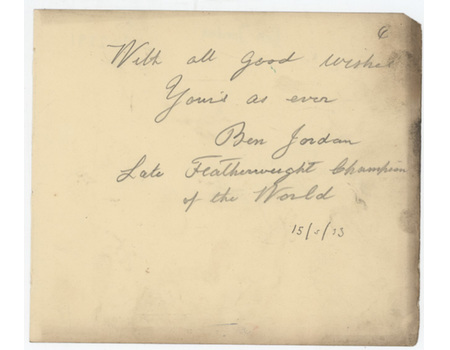 With all good wishes
Yours as ever
Ben Jordan
Late Featherweight Champion
of the World